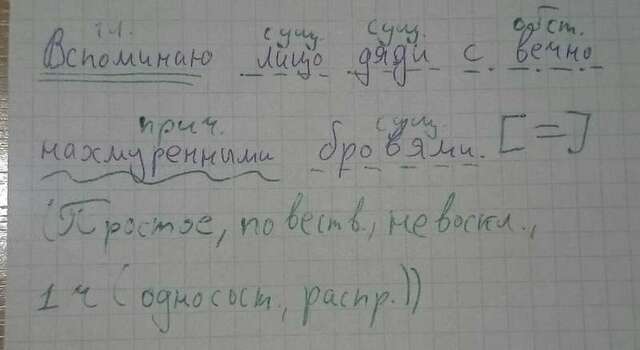 гл. сущ. сущ. обст.
Вспоминаю лицо дяди с вечно
прич. сущ.
нахмуренными бровями. [=]
(Простое, повеств., невоскл.,
1 ч (односост., распр.))